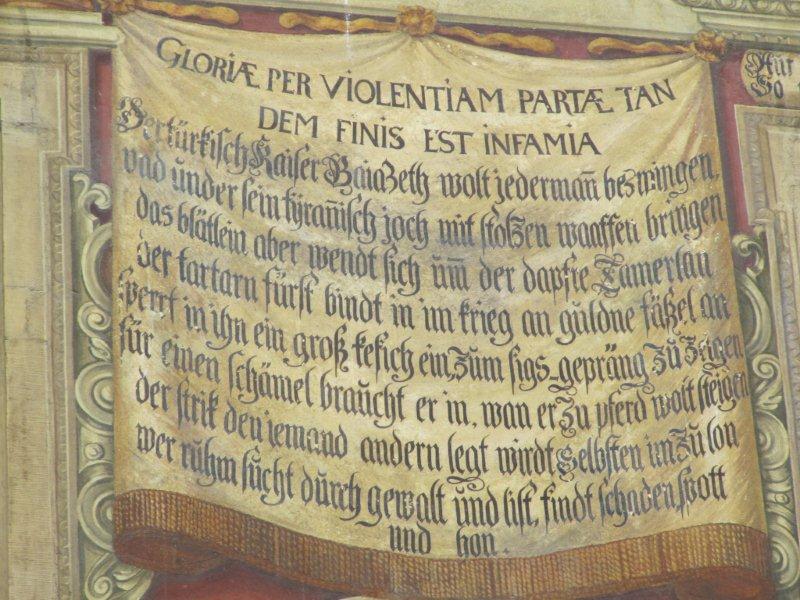 GLORIÆ PER VIOLENTIAM PARTÆ TAN
DEM FINIS EST INFAMIA
Der türkisch Kaiser Baiazeth wolt jederman̄ bezwingen,
vnd under sein tÿran̄isch joch mit stolzen waaffen bringen
das blätlein aber wendt sich üm̄ der dapfre Tamerlan
der tartarn fürst bindt in im krieg an güldne fäßel an
sperrt in ihn ein groß kefich ein, zum sigs-gepräng zů zeigen
für einen schämel braucht er in, wan er zu pferd wolt steigen
der strik den jemand andern legt wirdt selbsten im zu lon
wer růhm sůcht důrch gewalt ůnd list, findt schaden, spott
und hon.